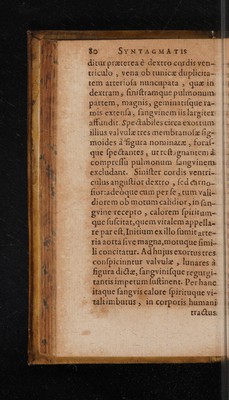 80 SYNTAGMATIS
ditur præterea è dextro cordis ven-
triculo , vena ob tunicæ duplicita-
tem arteriosa nuncupata , quæ in
dextram, sinistramque pulmonum
partem, magnis, geminatisque ra-
mis extensa, sangvinem iis largiter
affundit. Spectabiles circa exortum
illius valvulæ tres membranosæ sig-
moides à figura nominatæ , foras-
que spectantes , ut restagnantem à
compressu pulmonum sangvinem
excludant. Sinister cordis ventri-
culus angustior dextro , sed carno-
sior: adeoque cum per se , tum vali-
diorem ob motum calidior, in san-
gvine recepto , calorem spiritum-
que suscitat, quem vitalem appella-
re par est, Initium ex illo sumit arte-
ria aorta sive magna, motuque simi-
li concitatur. Ad hujus exortus tres
conspiciuntur valvulæ , lunares à
figura dictæ, sangvinisque regurgi-
tantis impetum sustinent. Per hanc
itaque sangvis calore spirituque vi-
tali imbutus , in corporis humani
tractus